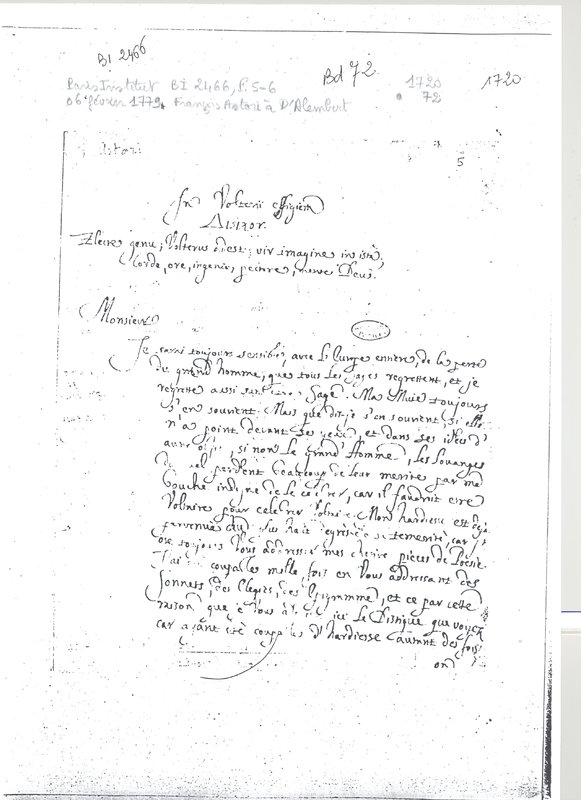 BI 2466
Bd 72
Paris Institut BI 2466, P. 5-6 1720 1720
06 février 1779, François Astori à D'Alembert 72
Astori
5
In Volterii effigiem
Flecte genu; Volterus adest; vir imagine in ista,
Corde, ore, ingenio, pectore, Deus.
Monsieur
Je sarai toujours sensible, avec l'Europe entière, de la perte
du grand homme, que tous les sages regrettent, et je
regrette aussi sage. Ma Muse toujours
s'en souvient. Mais que dit-je s'en souvient, si elle
n'a point devant ses yeux, et dans ses idées d'
autre objet, si non le grand Homme, les louanges
du quel perdent beaucoup de leur merite par ma
bouche indigne de le celebrer, car il faudrit etre
Voltaire pour celebrer Voltaire. Mon hardiesse est deja
parvenue au plus haut degrés de temerité, car j'
ose toujours Vous addresser mes chetive pieces de Poesie.
J'ai coupables mille fois en Vous addressant des
sonnets, des Elegies, des Epigramme, et ce par cette
raison que ici le Distique que voiçi,
car aïant été coupables d'hardiesse autant des fois
on